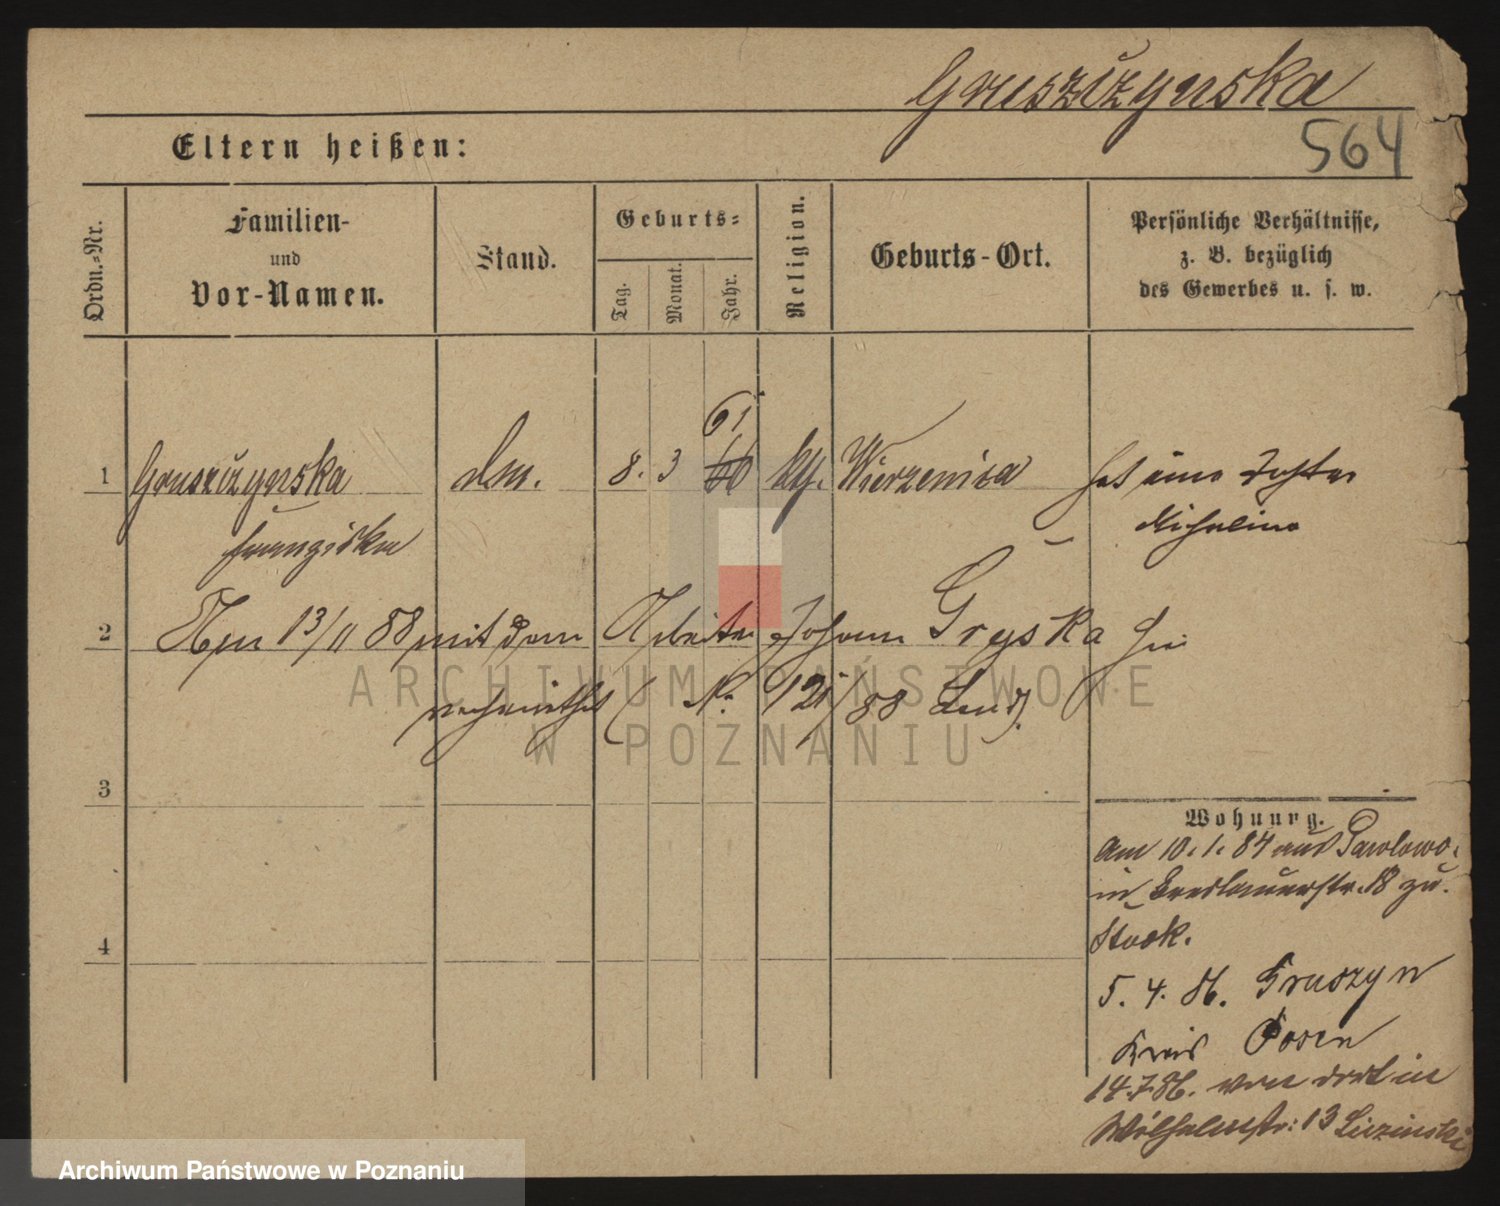 Gruszczynska
564
Eltern heißen:
Ordn.-Nr.
Familien-
und
Vor-Namen.
Stand.
Geburts-
Tag.
Monat.
Jahr.
Religion.
Geburts-Ort.
Persönliche Verhältnisse,
z. B. bezüglich
des Gewerbes u. s. w.
61
1 Gruszczynska 8. 3 60 kth. Wierzenica hat eine Tochter
Franziska Michalina
2 Am 13/11 88 mit dem Arbeiter Johann Gryska hie
verheirathet ( N. 121/88 )
ARCHIWUM PAŃSTWOWE
W POZNANIU
3
Wohnung.
Am 10. 1. 84 aus Pawlowo
in Breslauerstr. 18 zu.
4
Stock.
5. 4. 86. Gruszyn
Kreis Posen
14.7.86. von dort in
Wilhelmstr: 13
Archiwum Państwowe w Poznaniu